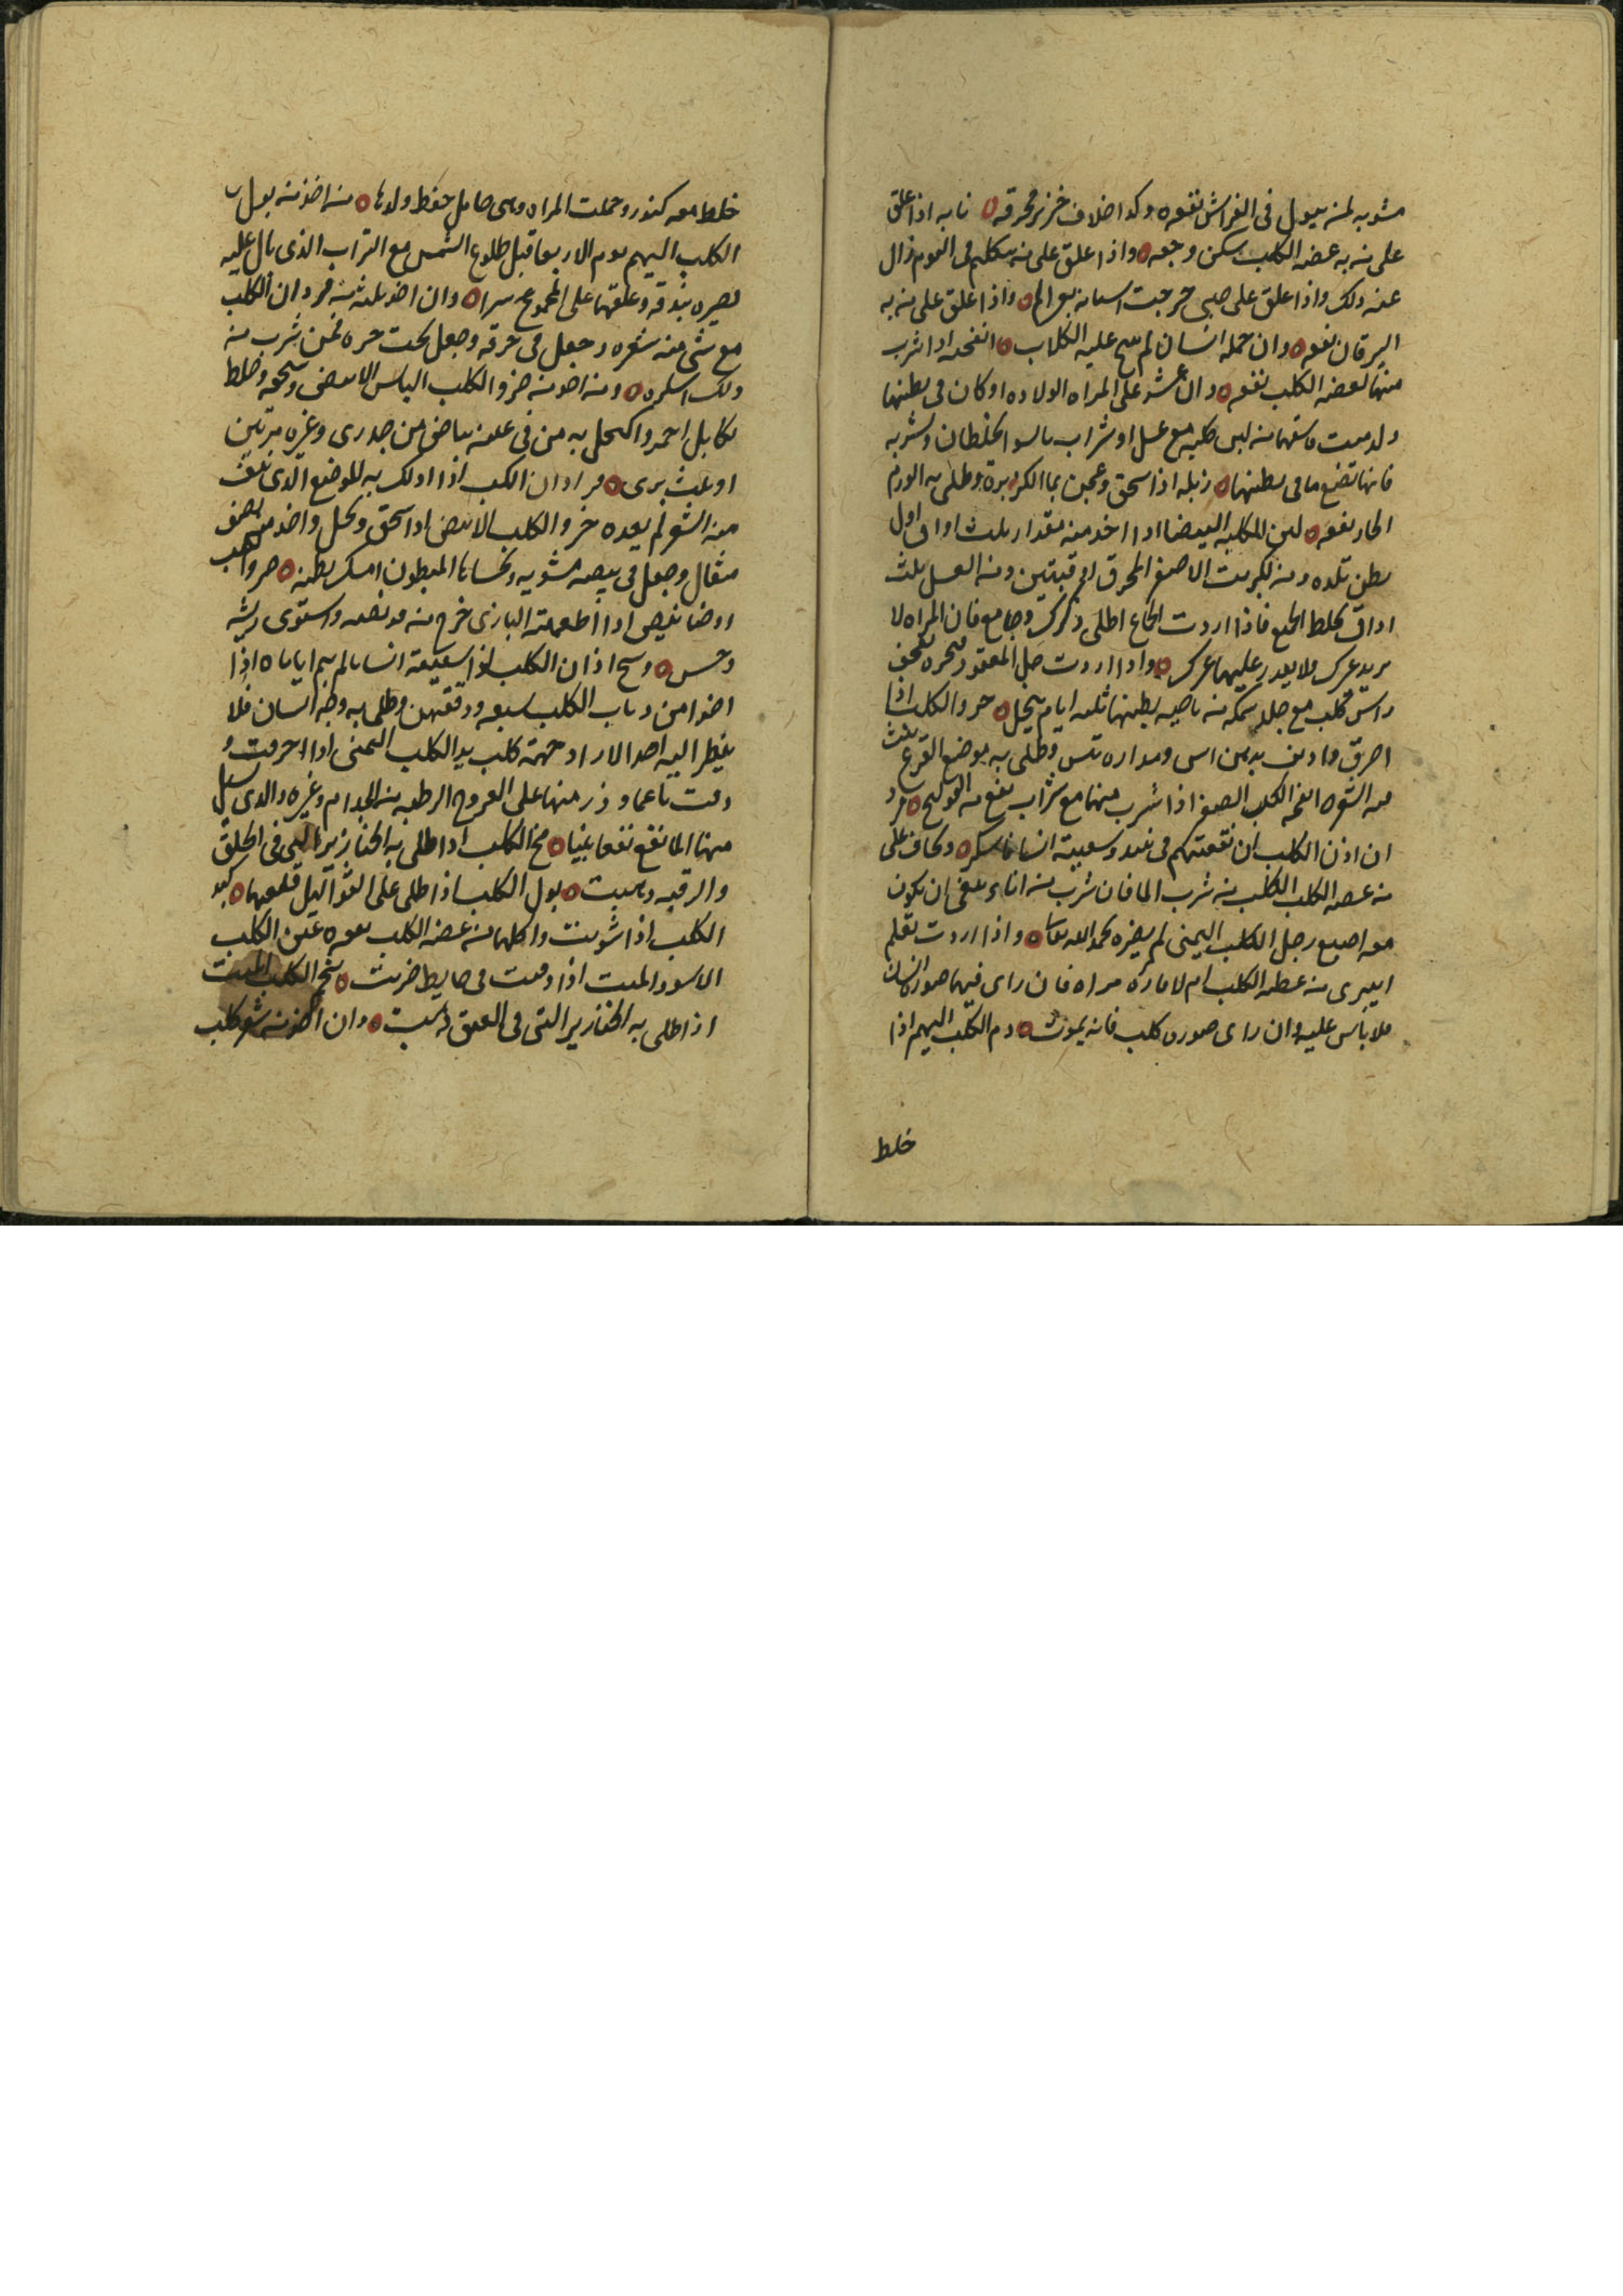 مشويه لمن يبول فى الفراش نفعه وكدا خلاف خنزير محرقه نابه اذا علق
على من به عضه الكلب سكن وجعه واذا علق على من يتكلم فى النوم زال
عنه ذلك واذا علق على صبى خرجت اسنانه بغير الم واذا علق على من به
اليرقان نفعه وان حمله انسان لم ينبح عليه الكلاب انفحته اذا شرب
منها لعضه الكلب نفعه وان عسر على المراه الولاده او كان فى بطنها
ولد ميت فاسقها من لبن كلبه مع عسل او شراب بالسوا يخلطان وتشربه
فانها تضع ما فى بطنها زبله اذا سحق وعجن بما الكزبرة وطلى به الورم
الحار نفعه لبن الكلبه البيضا اذا اخد منه مقدار ثلث اواق اول
بطن تلده ومن الكبريت الاصفر المحرق اوقيتين ومن العسل ثلث
اواق يخلط الجميع فاذا اردت الجماع اطلى ذكرك وجامع فان المراه لا
يريد غيرك ولا يقدر عليها غيرك واذا اردت حل المعقود فبخره بقحف
راس كلب مع جلد سمكه من ناحيه بطنها ثلثه ايام ينحل خرو الكلب اذا
احرق وديف بدهن اس ومراره تيس وطلى به موضع القرع ينبت
فيه الشعر انفحه الكلب الصغير اذا شرب منها مع شراب نفع من القولنج
ان اذن الكلب ان نقعتهم فى نبيد وسقيته انسانا سكر ويخاف على
من عضه الكلب الكلب من شرب الما فان شرب من اناء ينبغى ان يكون
معه اصبع رجل الكلب اليمنى لم يضره بحمد الله تعالى واذا اردت تعلم
ايبرى من عضه الكلب ام لا فاره مراه فان راى فيها صورة انسان
فلا باس عليه وان راى صورة كلب فانه يموت دم الكلب البهيم اذا
خلط
خلط معه كندر وحملت المراه وهى حامل حفظ ولدها من اخذ من بول
الكلب البهيم يوم الاربعا قبل طلوع الشمس مع التراب الذى بال عليه
يصيره بندقه وعلقها على المحموم يبرا وان اخذ ثلثه من قردان الكلب
مع شى من شعره وجعل فى خرقه وجعل تحت جره فمن شرب منه
ذلك اسكره ومن اخذ من خرو الكلب اليابس الابيض وسحقه وخلط
بكابل احمر واكتحل به من فى عينه بياض من جدرى وغيره مرتين
او ثلث برى قردان الكلب اذا دلك به الموضع الذى ينتف
منه الشعر لم يعده خرو الكلب الابيض اذا سحق ونخل واخذ منه نصف
مثقال وجعل فى بيضه مشويه وتحساها المبطون امسك بطنه خرو الكلب
اذا اطعمته البازى خرج منه
وحسن وسخ اذان الكلب اذا سقيته انسانا لم يبم اياما اذا
اخذ من دباب الكلب سبعه ودققتهن وطلى به وجه انسان فلا
ينظر اليه احد الا راد حمة كلب يد الكلب اليمنى اذا احرقت و
دقت ناعما وذر منها على القروح الرطبه من الجدام وغيره والدى يسيل
منها الما نفع نفعا بينا مخ الكلب اذا طلى به الخنازير التى فى الحلق
والرقبه ذهبت بول الكلب اذا طلى على الثواليل قلعها كبد
الكلب اذا شويت واكلها من عضه الكلب نفعه عين الكلب
الاسود الميت اذا دفنت فى حايط خربت مخ الكلب الميت
اذا طلى به الخنازير التى فى العنق ذهبت وان اخذ من شعر كلب